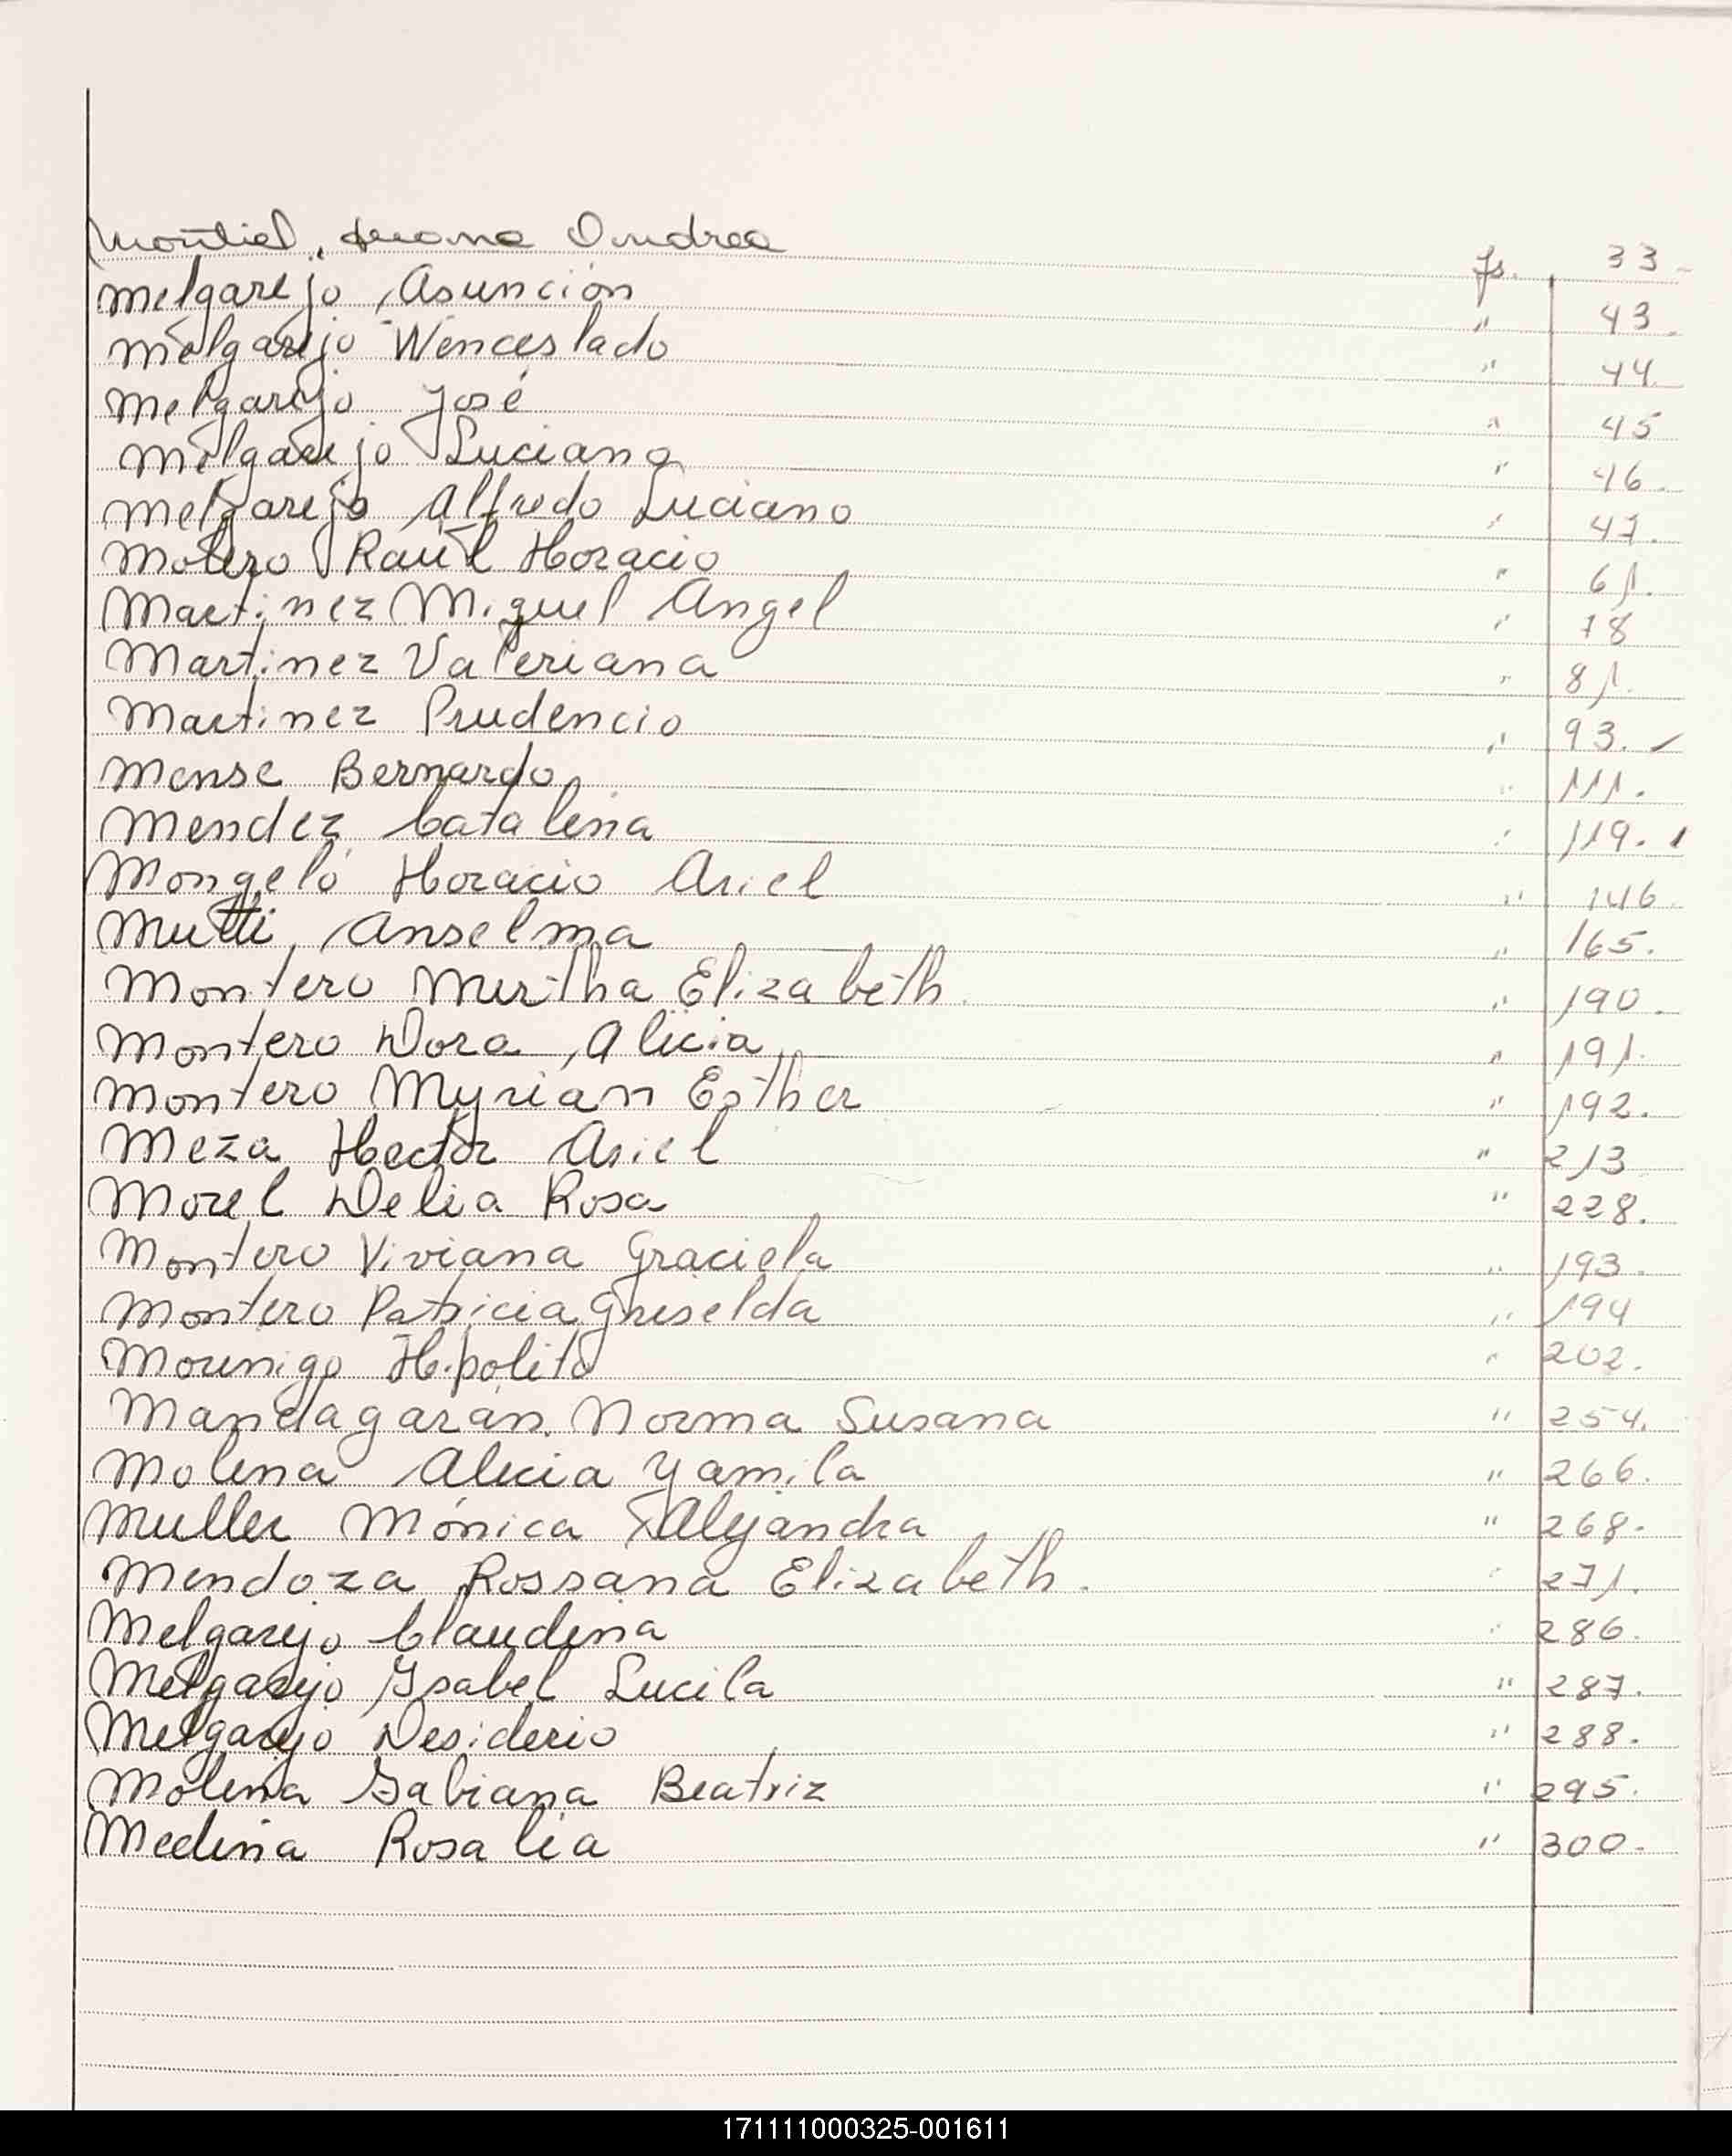 Montiel, Juana Andrea fs. 33
Melgarejo Asunción " 43
Melgarejo Wenceslado " 44
Melgarejo José " 45
Melgarejo Luciana " 46
Melgarejo Alfredo Luciano " 47.
Molero Raúl Horacio " 61.
Martinez Miguel Angel " 78
Martinez Valeriana " 81.
Martinez Prudencio " 93.
Mense Bernardo " 111.
Mendez Catalina " 119.
Mongeló Horacio Ariel " 146
Mutti, Anselma " 165.
Montero Mirtha Elizabeth. " 190.
Montero Dora Alicia " 191.
Montero Myrian Esther " 192.
Meza Hector Ariel " 213
Morel Delia Rosa " 228.
Montero Viviana Graciela " 193.
Montero Patricia Griselda " 194
Morinigo Hipolito " 202.
Mandagarán Norma Susana " 254.
Molina Alicia Yamila " 266.
Muller Mónica Alejandra " 268.
Mendoza Rossana Elizabeth. " 271.
Melgarejo Claudina " 286.
Melgarejo Ysabel Lucila " 287.
Melgarejo Desiderio " 288.
Molina Fabiana Beatriz " 295.
Medina Rosalia " 300.
171111000325-001611